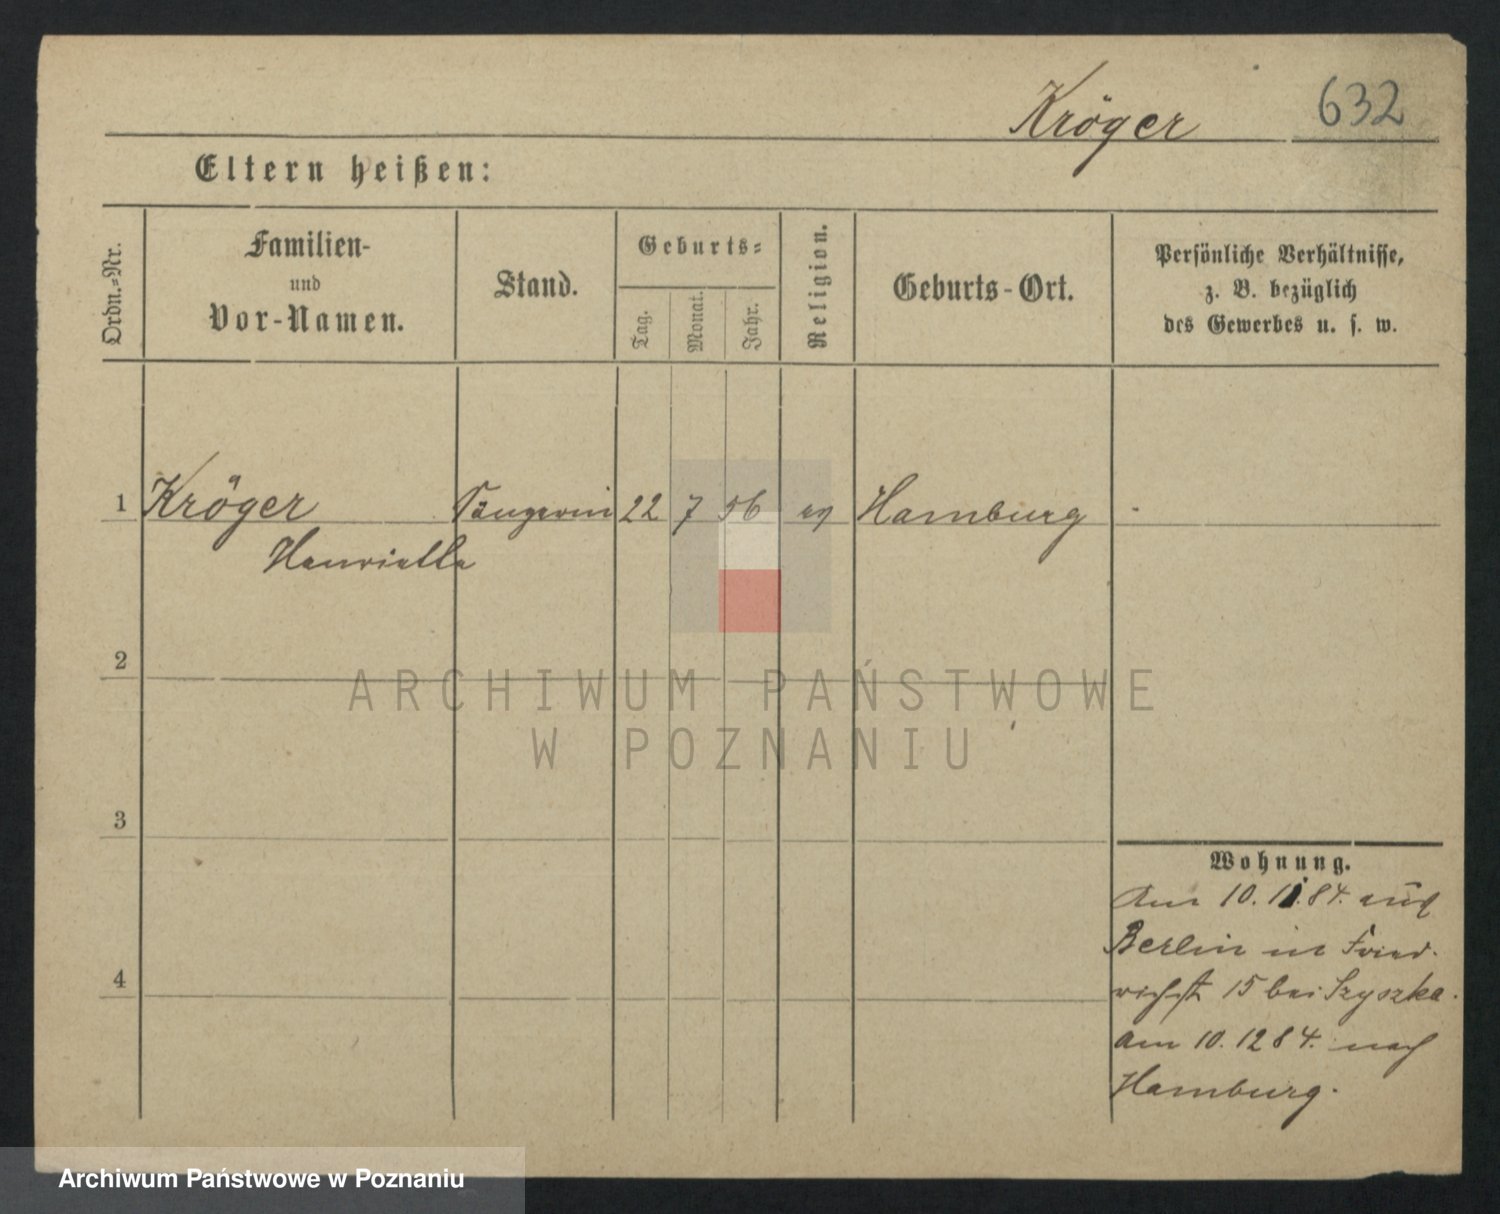 Kröger 632
Eltern heißen:
Ordn.-Nr.
Familien-
und
Vor-Namen.
Stand.
Geburts-
Tag.
Monat.
Jahr.
Religion.
Geburts-Ort.
Persönliche Verhältnisse,
z. B. bezüglich
des Gewerbes u. s. w.
1 Kröger Sängerin 22 7 56 ev Hamburg
Henriette
2
ARCHIWUM PAŃSTWOWE
W POZNANIU
3
Wohnung.
Am 10. 11. 84. aus
Berlin in Fried-
richst 15 bei Szyszka.
4
am 10. 12 84. nach
Hamburg.
Archiwum Państwowe w Poznaniu